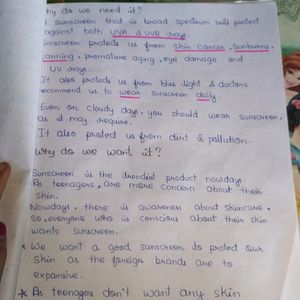 Why do we need it?
A sunscreen that is broad spectrum will protect
against both UVA & UVB rays.
Sunscreen protects us from skin cancer, sunburns,
tanning, premature aging, eye damage and
UV rays.
It also protects us from blue light & doctors
recommend us to wear sunscreen daily.
Even on cloudy days, you should wear sunscreen,
as it may require.
It also protect us from dirt & pollution.
Why do we want it?
Sunscreen is the trendiest product nowdays.
As teenagers, are more concern about their
skin.
Nowdays, there is awareness about skincare.
So, everyone who is conscious about their skin
wants sunscreen.
* We want a good sunscreen to protect our
Skin as the foreign brands are to
expansive.
* As teenagers don't want any skin